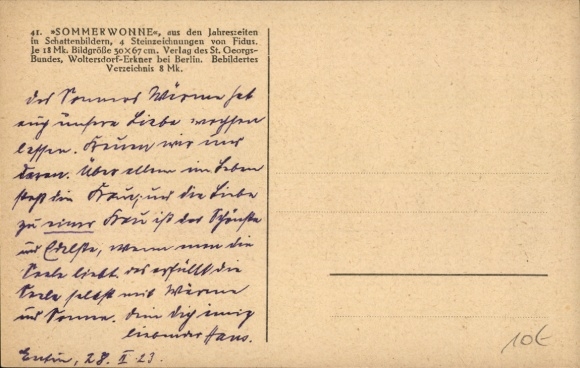 41. »SOMMERWONNE«, aus den Jahreszeiten
in Schattenbildern, 4 Steinzeichnungen von Fidus.
Je 18 Mk. Bildgröße 30×67 cm. Verlag des St. Georgs-
Bundes, Woltersdorf-Erkner bei Berlin. Bebildertes
Verzeichnis 8 Mk.
Des Sommers Wärme hat
auch unsere Liebe wachsen
lassen. Freuen wir uns
daran. Über allem im Leben
steht die Frau, und die Liebe
zu einer Frau ist das Schönste
und Edelste, wenn man die
Seele liebt das erfüllt die
Seele selbst mit Wärme
und Sonne. Dein dich innig
liebender Hans.
28. II 23.
10€